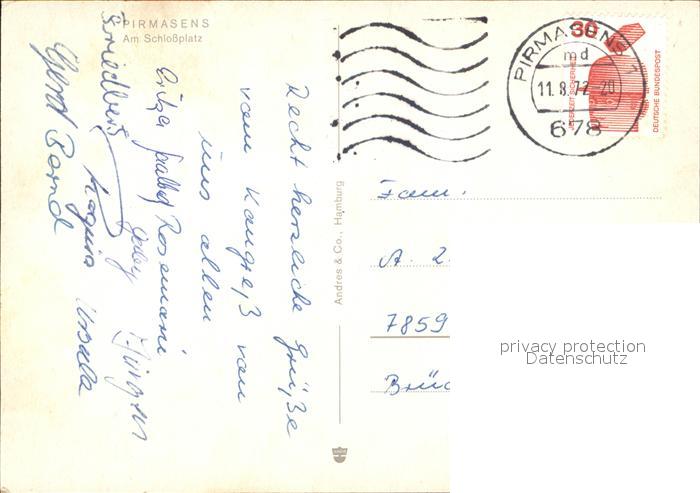 PIRMASENS
Am Schloßplatz
Recht herzliche Grüße
vom Kongreß von
uns allen
Rosemarie
Friedbert Jürgen
Regina Ursula
Gerd Bernd
Andres & Co., Hamburg
PIRMASENS 1
md
11.8.72-20
678
30
JEDERZEIT SICHERHEIT
DEUTSCHE BUNDESPOST
Fam.
A. 2.
7859
Brüc
privacy protection
Datenschutz